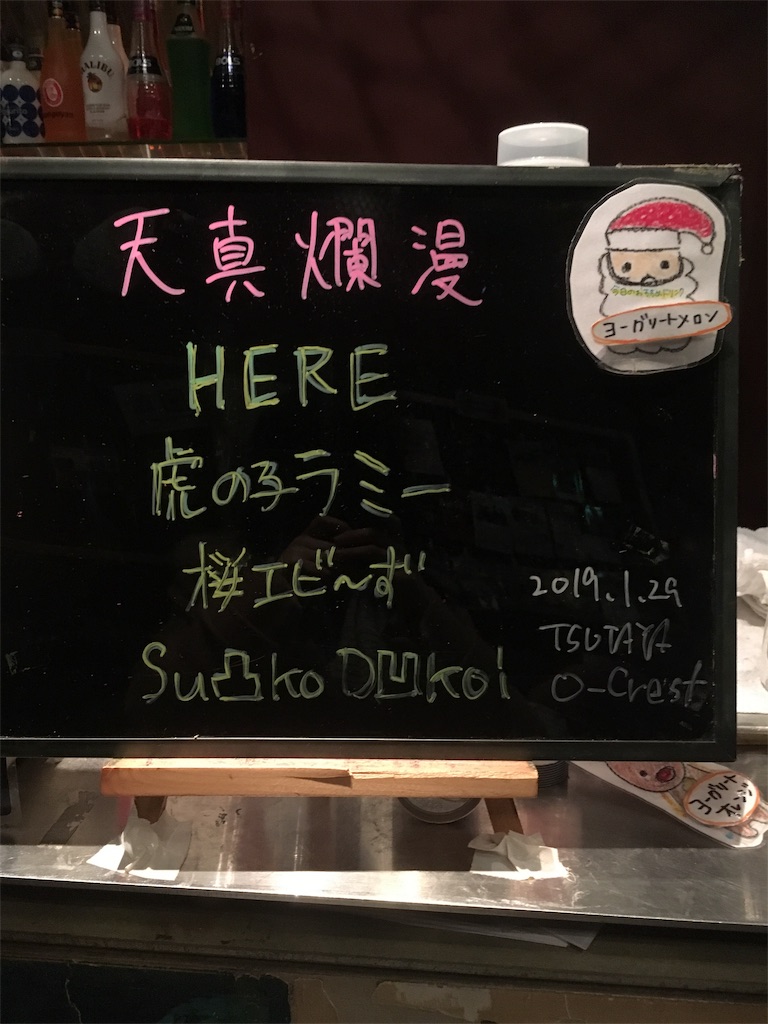 MALIBU
天真爛漫
HERE
虎の子ラミー
桜エビ〜ず
Su凸ko D凹koi
2019.1.29
TSUTAYA
O-Crest
今日のおすすめドリンク
ヨーグリートメロン
ヨーグリート
オレンジ